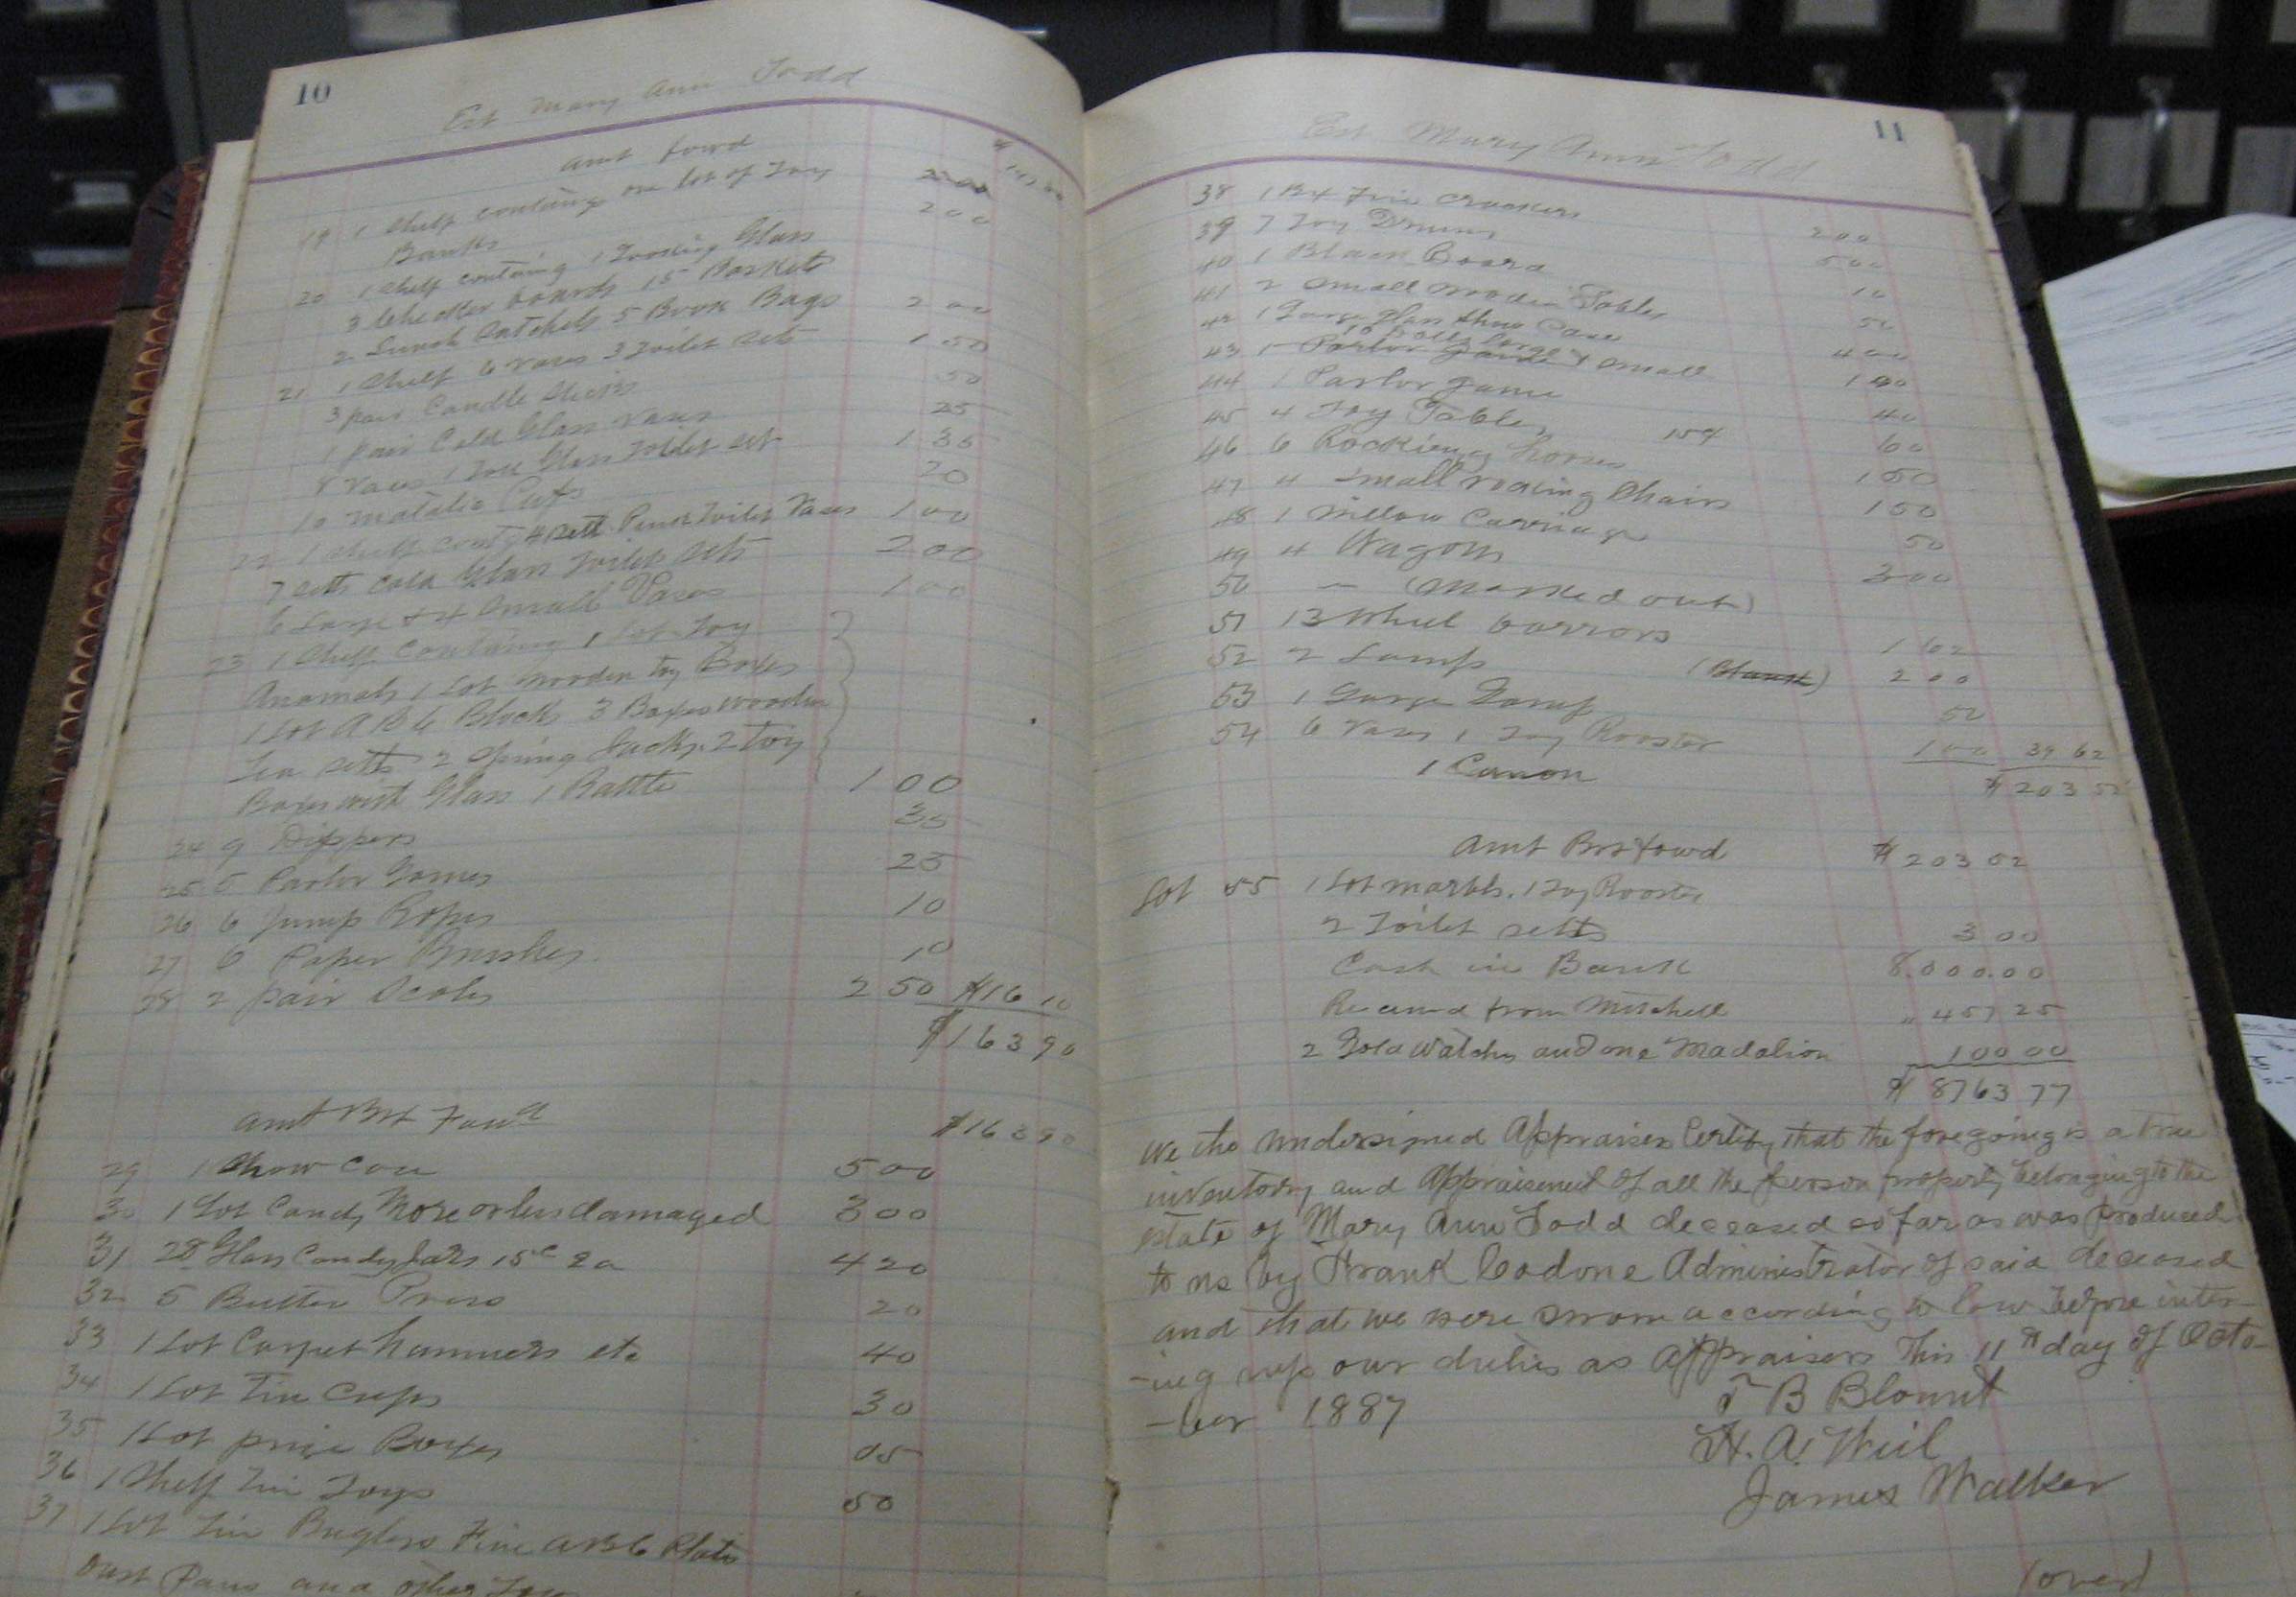 10
Est Mary Ann Todd
amt forwd
19 1 Shelf containg one lot of Toy 2 00
Banks
20 1 Shelf containg 1 Looking Glass 2 00
3 Checker boards 15 Baskets
2 Lunch Satchels 5 Book Bags 2 00
21 1 Shelf 6 vases 3 Toilet sets 1 50
3 pair Candle Sticks 50
1 pair Cold Glass vases 25
8 vases 1 Glass Toilet set 1 35
10 matalic Cups 20
22 1 Shelf Contg 4 sett Toilet Vases 1 00
7 setts Cold Glass Toilet sets 2 00
6 Large & 4 Small Vases 1 00
23 1 Shelf Containing 1 lot Toy
Anamals 1 Lot wooden toy Boxes
1 Lot A B C Blocks 3 Boxes wooden
Tea setts 2 Spring Jacks, 2 Toy
Boxes with Glass 1 Rattle 1 00
24 9 Dippers 35
25 5 Parlor Games 25
26 6 Jump Ropes 10
27 6 Paper Brushes 10
28 2 pair Scales 2 50 $16 10
$163 90
amt Brt Fowd $163 90
29 1 Show Case 5 00
30 1 Lot Candy More or less damaged 3 00
31 28 Glass Candy Jars 15c Ea 4 20
32 5 Butter 20
33 1 Lot Carpet hammers etc 40
34 1 Lot Tin Cups 30
35 1 Lot prize Boxes 05
36 1 Shelf Tin Toys 50
37 1 Lot Tin Buglers Tin ABC Plates
Dust Pans and other Toys
11
Est Mary Ann Todd
38 1 Bx Fire Crackers 2 00
39 7 Toy Drums 5 00
40 1 Black Board 10
41 2 Small Wooden Tables 50
42 1 Large Glass Show Case 4 00
43 1 Parlor Game 10 Dolls Large & Small 1 00
44 1 Parlor Game 40
45 4 Toy Tables 15¢ 60
46 6 Rocking horses 1 50
47 4 Small rocking Chairs 1 00
48 1 Willow Carriage 50
49 4 Wagons 3 00
50 – (Marked out)
51 13 Wheel barrors 1 62
52 2 Lamps (Blank) 2 00
53 1 Large Lamp 50
54 6 Vases 1 Toy Rooster 1 00 39 62
1 Canon $203 52
Amt Brt fowd $203 52
Lot 55 1 Lot marbls. 1 Toy Rooster
2 Toilet setts 3 00
Cash in Bank 8.000.00
Received from Mitchell " 457 25
2 Gold Watches and one Madalion 100 00
$ 8763 77
We the undersigned Appraisers Certify that the foregoing is a true
inventory and Appraisement of all the person property belonging to the
estate of Mary Ann Todd deceased so far as was produced
to us by Frank Codone Administrator of said deceased
and that we were sworn according to law before inter-
-ing up our duties as Appraisers This 11th day of Octo-
-ber 1887 T B Blount
H. A. Weil
James Walker
(over)